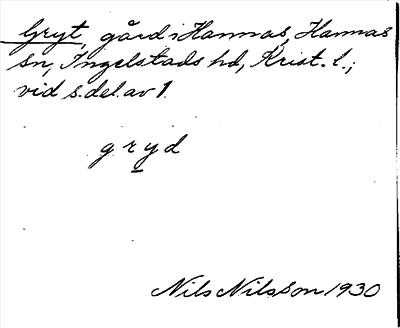 Gryt, gård i Hannas, Hannas
sn, Ingelstads hd, Krist. l.;
vid s. del. av 1.
g r y d
Nils Nilsson 1930